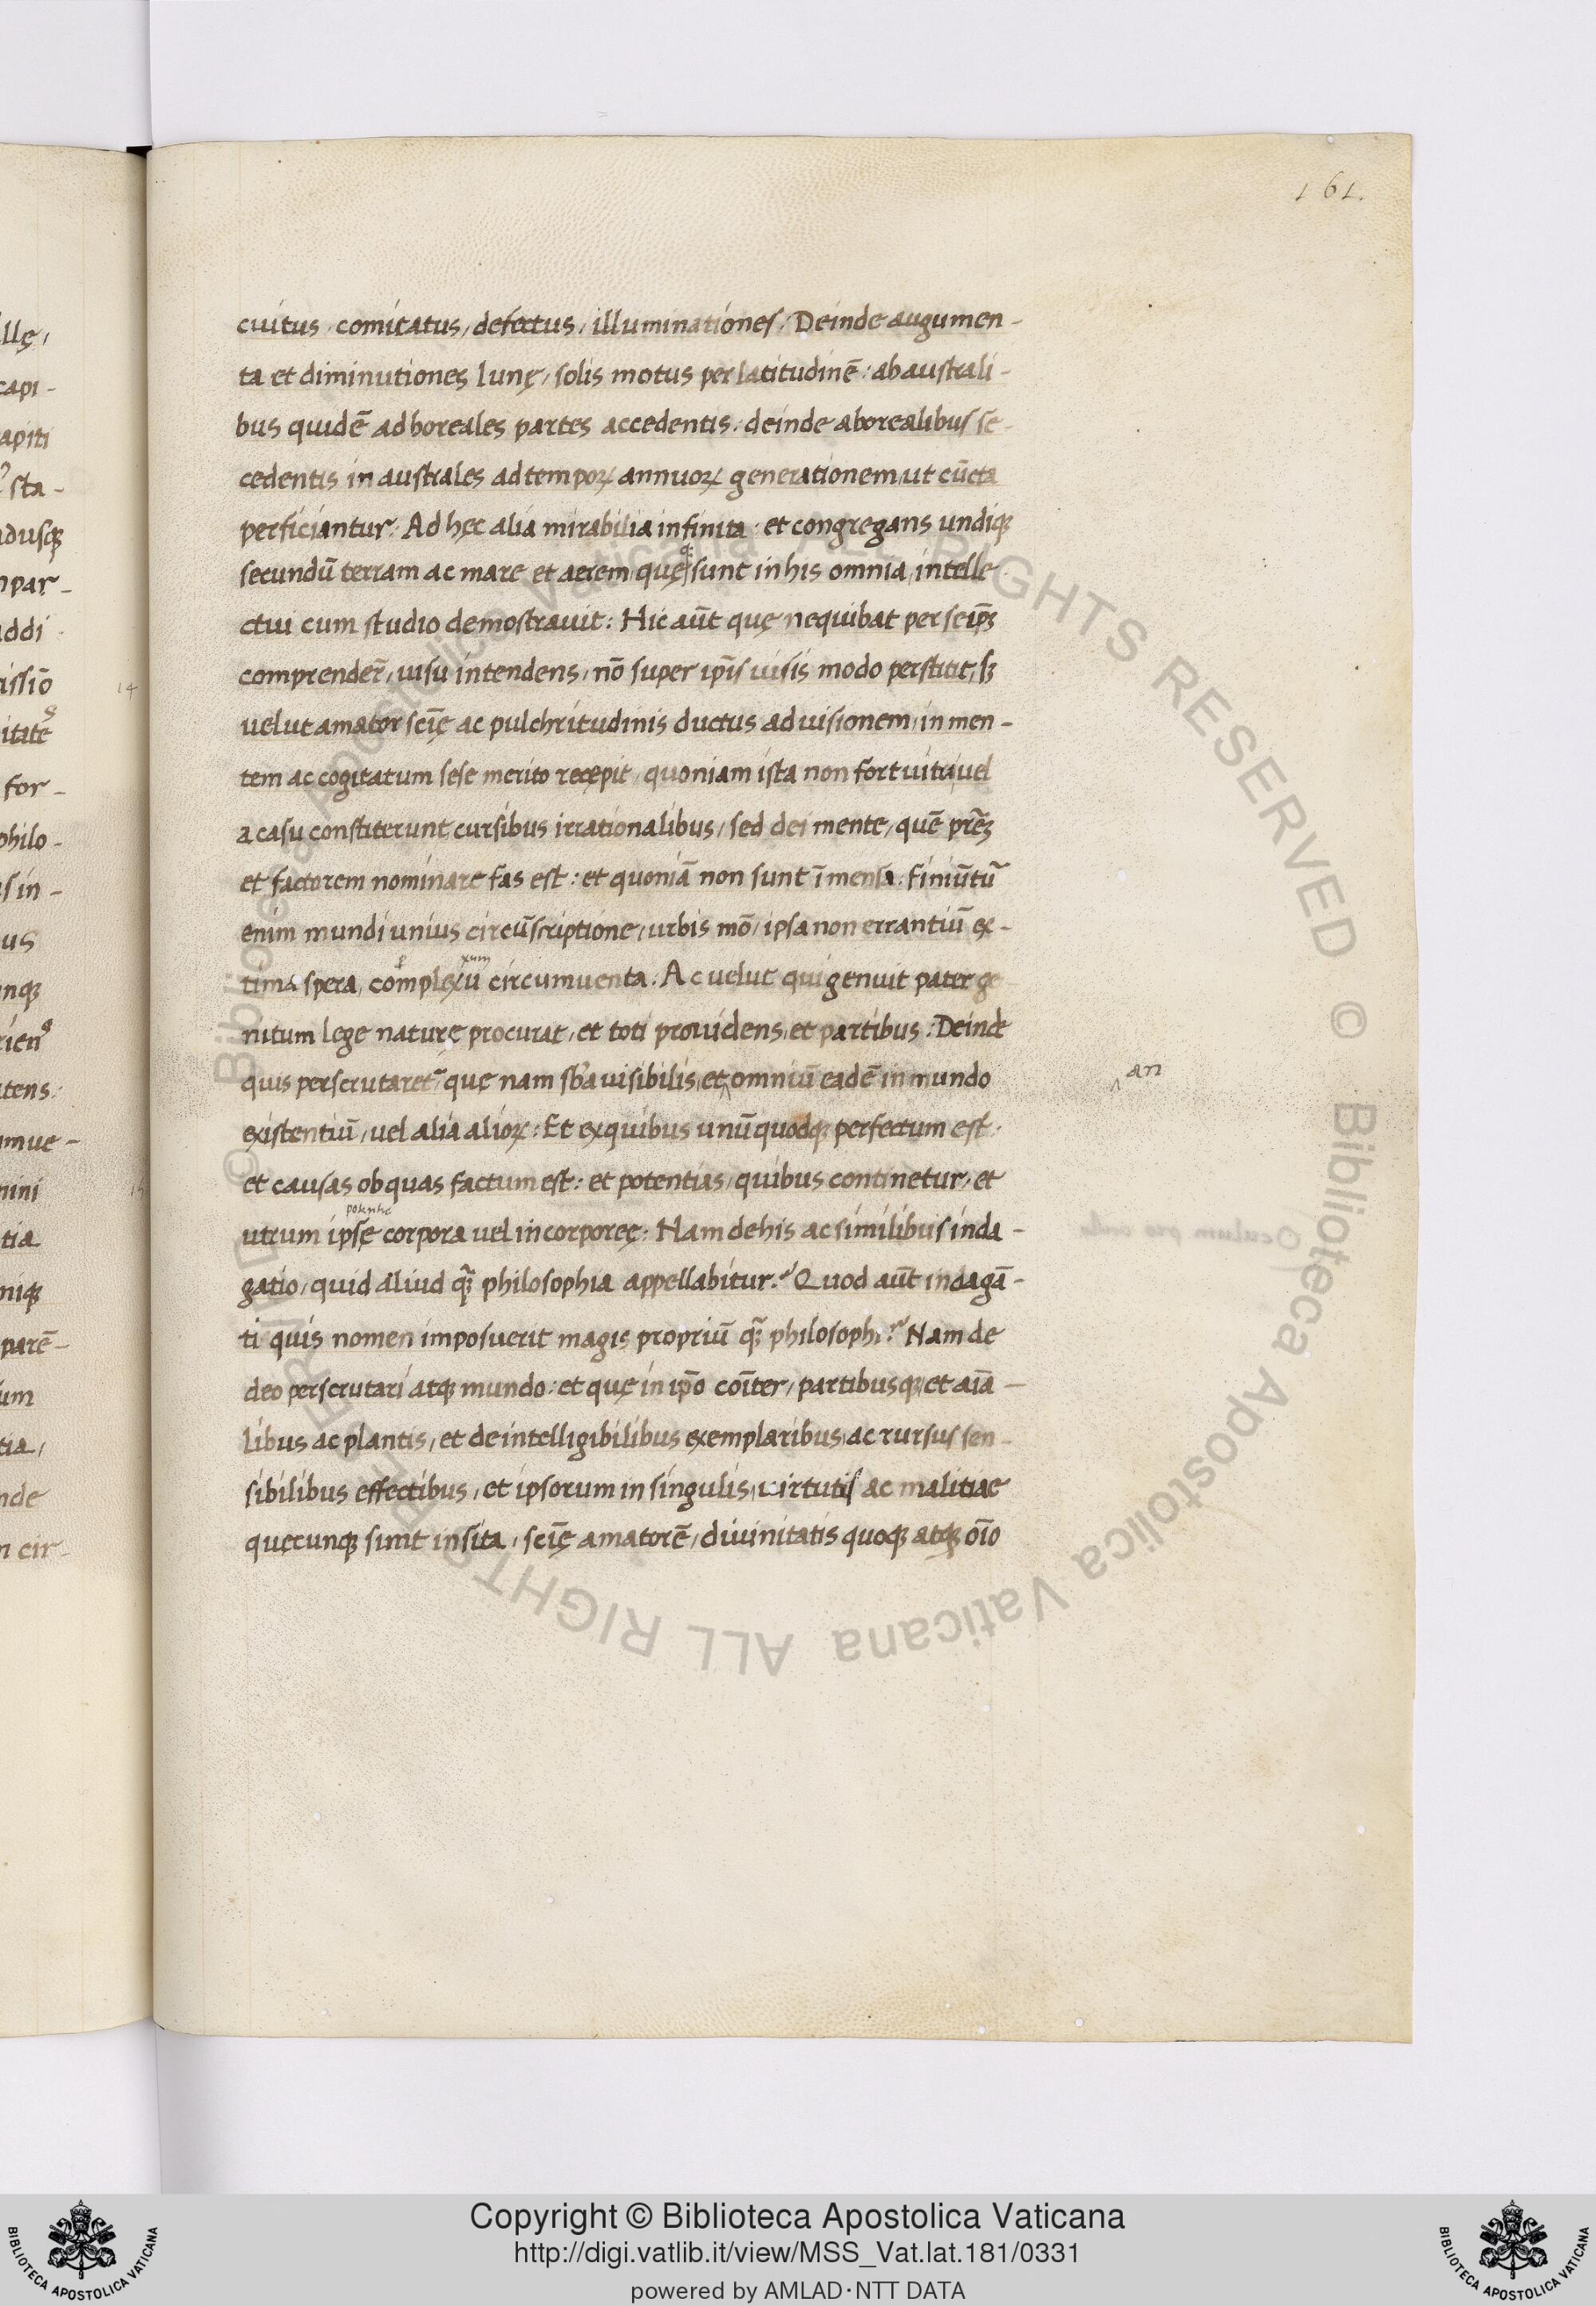 161.
cuitus, comitatus, defectus, illuminationes. Deinde augumen-
ta et diminutiones lunę, solis motus per latitudinē: ab australi-
bus quidē ad boreales partes accedentis, deinde a borealibus se-
cedentis in australes ad tempoꝝ annuoꝝ generationem, ut cūcta
perficiantur. Ad hęc alia mirabilia infinita: et congregans undiqꝫ
secundū terram ac mare et aerem, quęqꝫ sunt in his omnia, intelle
ctui cum studio demostrauit: Hic aūt quę nequibat per seip̄ꝫ
comprender̄, uisu intendens, nō super ip̄is uisis modo perstitit, sꝫ
uelut amator scię̄ ac pulchritudinis ductus ad uisionem, in men-
tem ac cogitatum sese merito recępit, quoniam ista non fortuita, uel
a casu constiterunt, cursibus irrationalibus, sed dei mente, quē pr̄eꝫ
et factorem nominare fas est: et quoniā non sunt īmensa. finiūtur̄
enim mundi unius circūscriptione, urbis mō, ipsa non errantiū ex-
tima spera, complexū circumuenta. Ac uelut qui genuit pater ge
xum
nitum lege naturę procurat, et toti prouidens, et partibus: Deinde
quis perscrutaret̄ quę nam sb̄a uisibilis, et omniū eadē in mundo
an
existentiū, uel alia alioꝝ: Et ex quibus unūquodqꝫ perfectum est:
et causas ob quas factum est: et potentias, quibus continetur, et
potentie
utrum ipsę corpora uel incorporeę: Nam de his ac similibus inda-
gatio, quid aliud qꝫ̄ philosophia appellabitur? Quod aūt indagā-
ti quis nomen imposuerit magis propriū qꝫ̄ philosophi? Nam de
deo perscrutari atqꝫ mundo: et quę in ip̄o coīter, partibusqꝫ et aiā-
libus ac plantis, et de intelligibilibus exemplaribus, ac rursus sen-
sibilibus effectibus, et ipsorum in singulis, uirtutis ac malitiae
quęcunqꝫ sunt insita, scię̄ amatorē, diuinitatis quoqꝫ atqꝫ oīo
Copyright © Biblioteca Apostolica Vaticana
http://digi.vatlib.it/view/MSS_Vat.lat.181/0331
powered by AMLAD·NTT DATA
BIBLIOTECA APOSTOLICA VATICANA
BIBLIOTECA APOSTOLICA VATICANA
© Biblioteca Apostolica Vaticana ALL RIGHTS RESERVED © Biblioteca Apostolica Vaticana ALL RIGHTS RESERVED